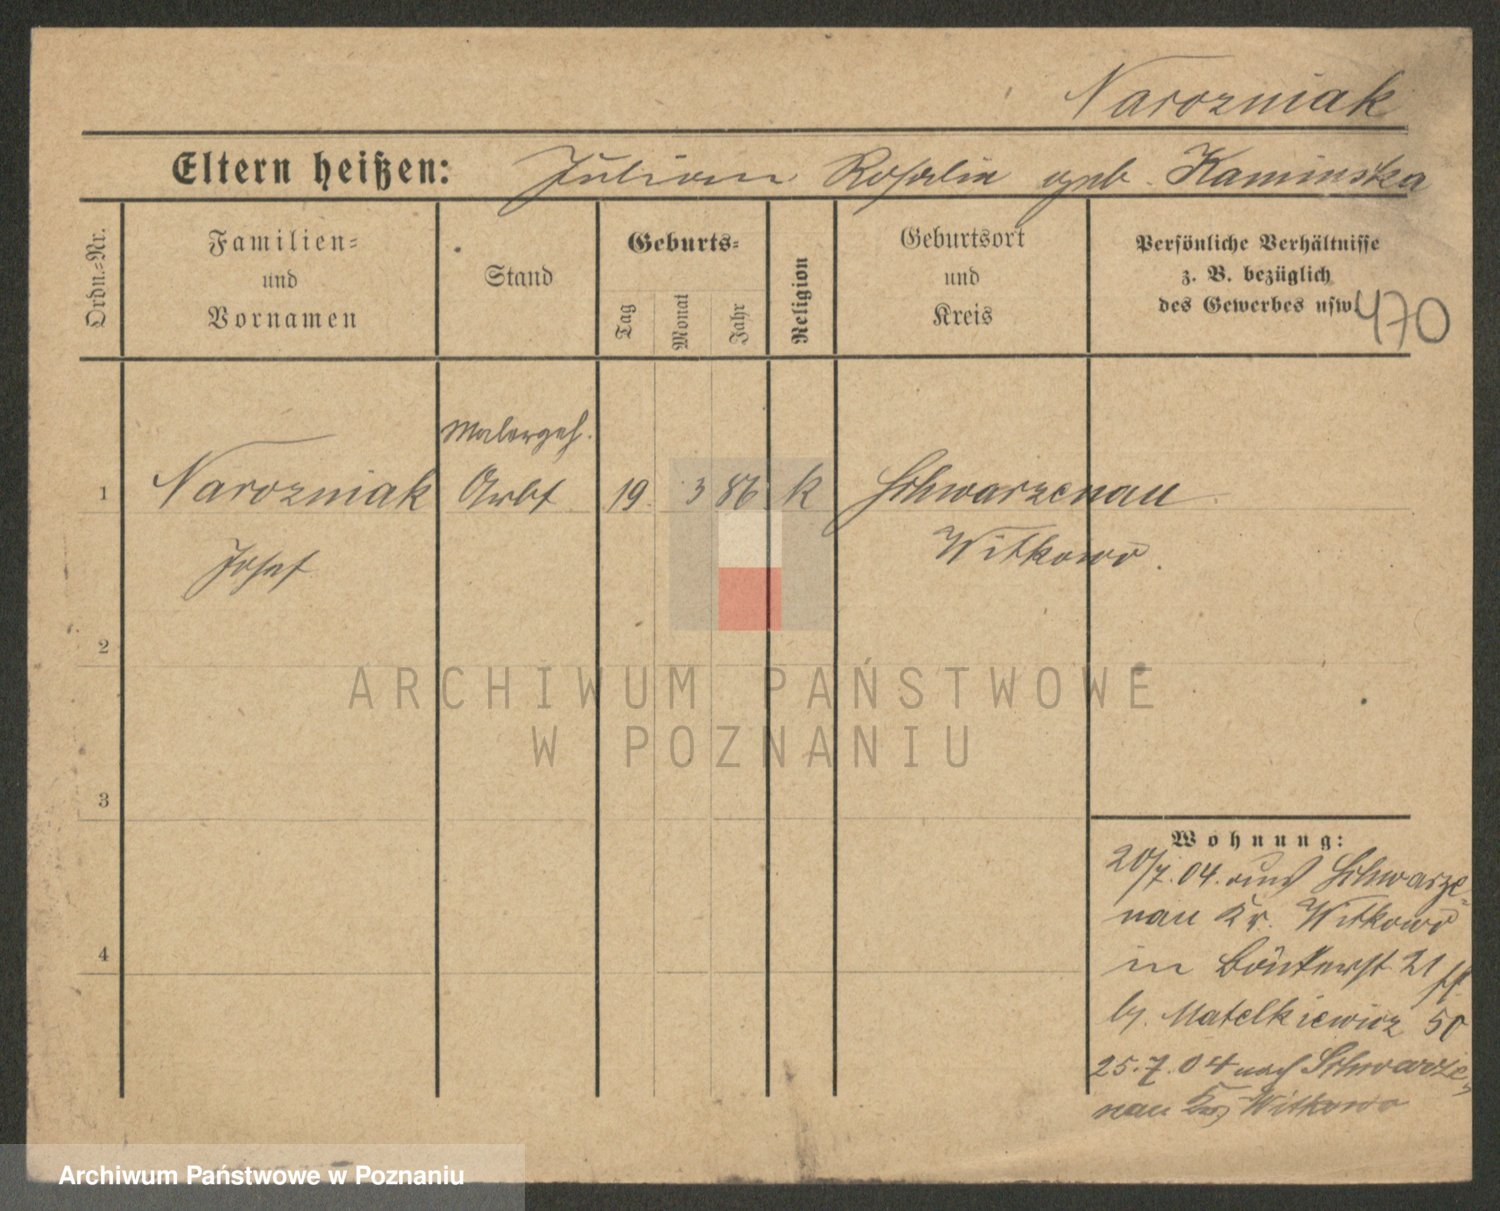 Narozniak
Eltern heißen: Julian Rosalie geb. Kaminska
Ordn.-Nr.
Familien-
und
Vornamen
Stand
Geburts-
Tag
Monat
Jahr
Religion
Geburtsort
und
Kreis
Persönliche Verhältnisse
z. B. bezüglich
des Gewerbes usw.
470
Malergeh.
1 Narozniak Arbt 19. 3 86 k Schwarzenau
Josef Witkowo.
2
ARCHIWUM PAŃSTWOWE
W POZNANIU
3
Wohnung:
20/7.04. aus Schwarze-
nau Kr. Witkowo
4
in 21
by. Matelkiewicz 50
25.7.04 nach Schwarze-
nau Krs Witkowo
Archiwum Państwowe w Poznaniu